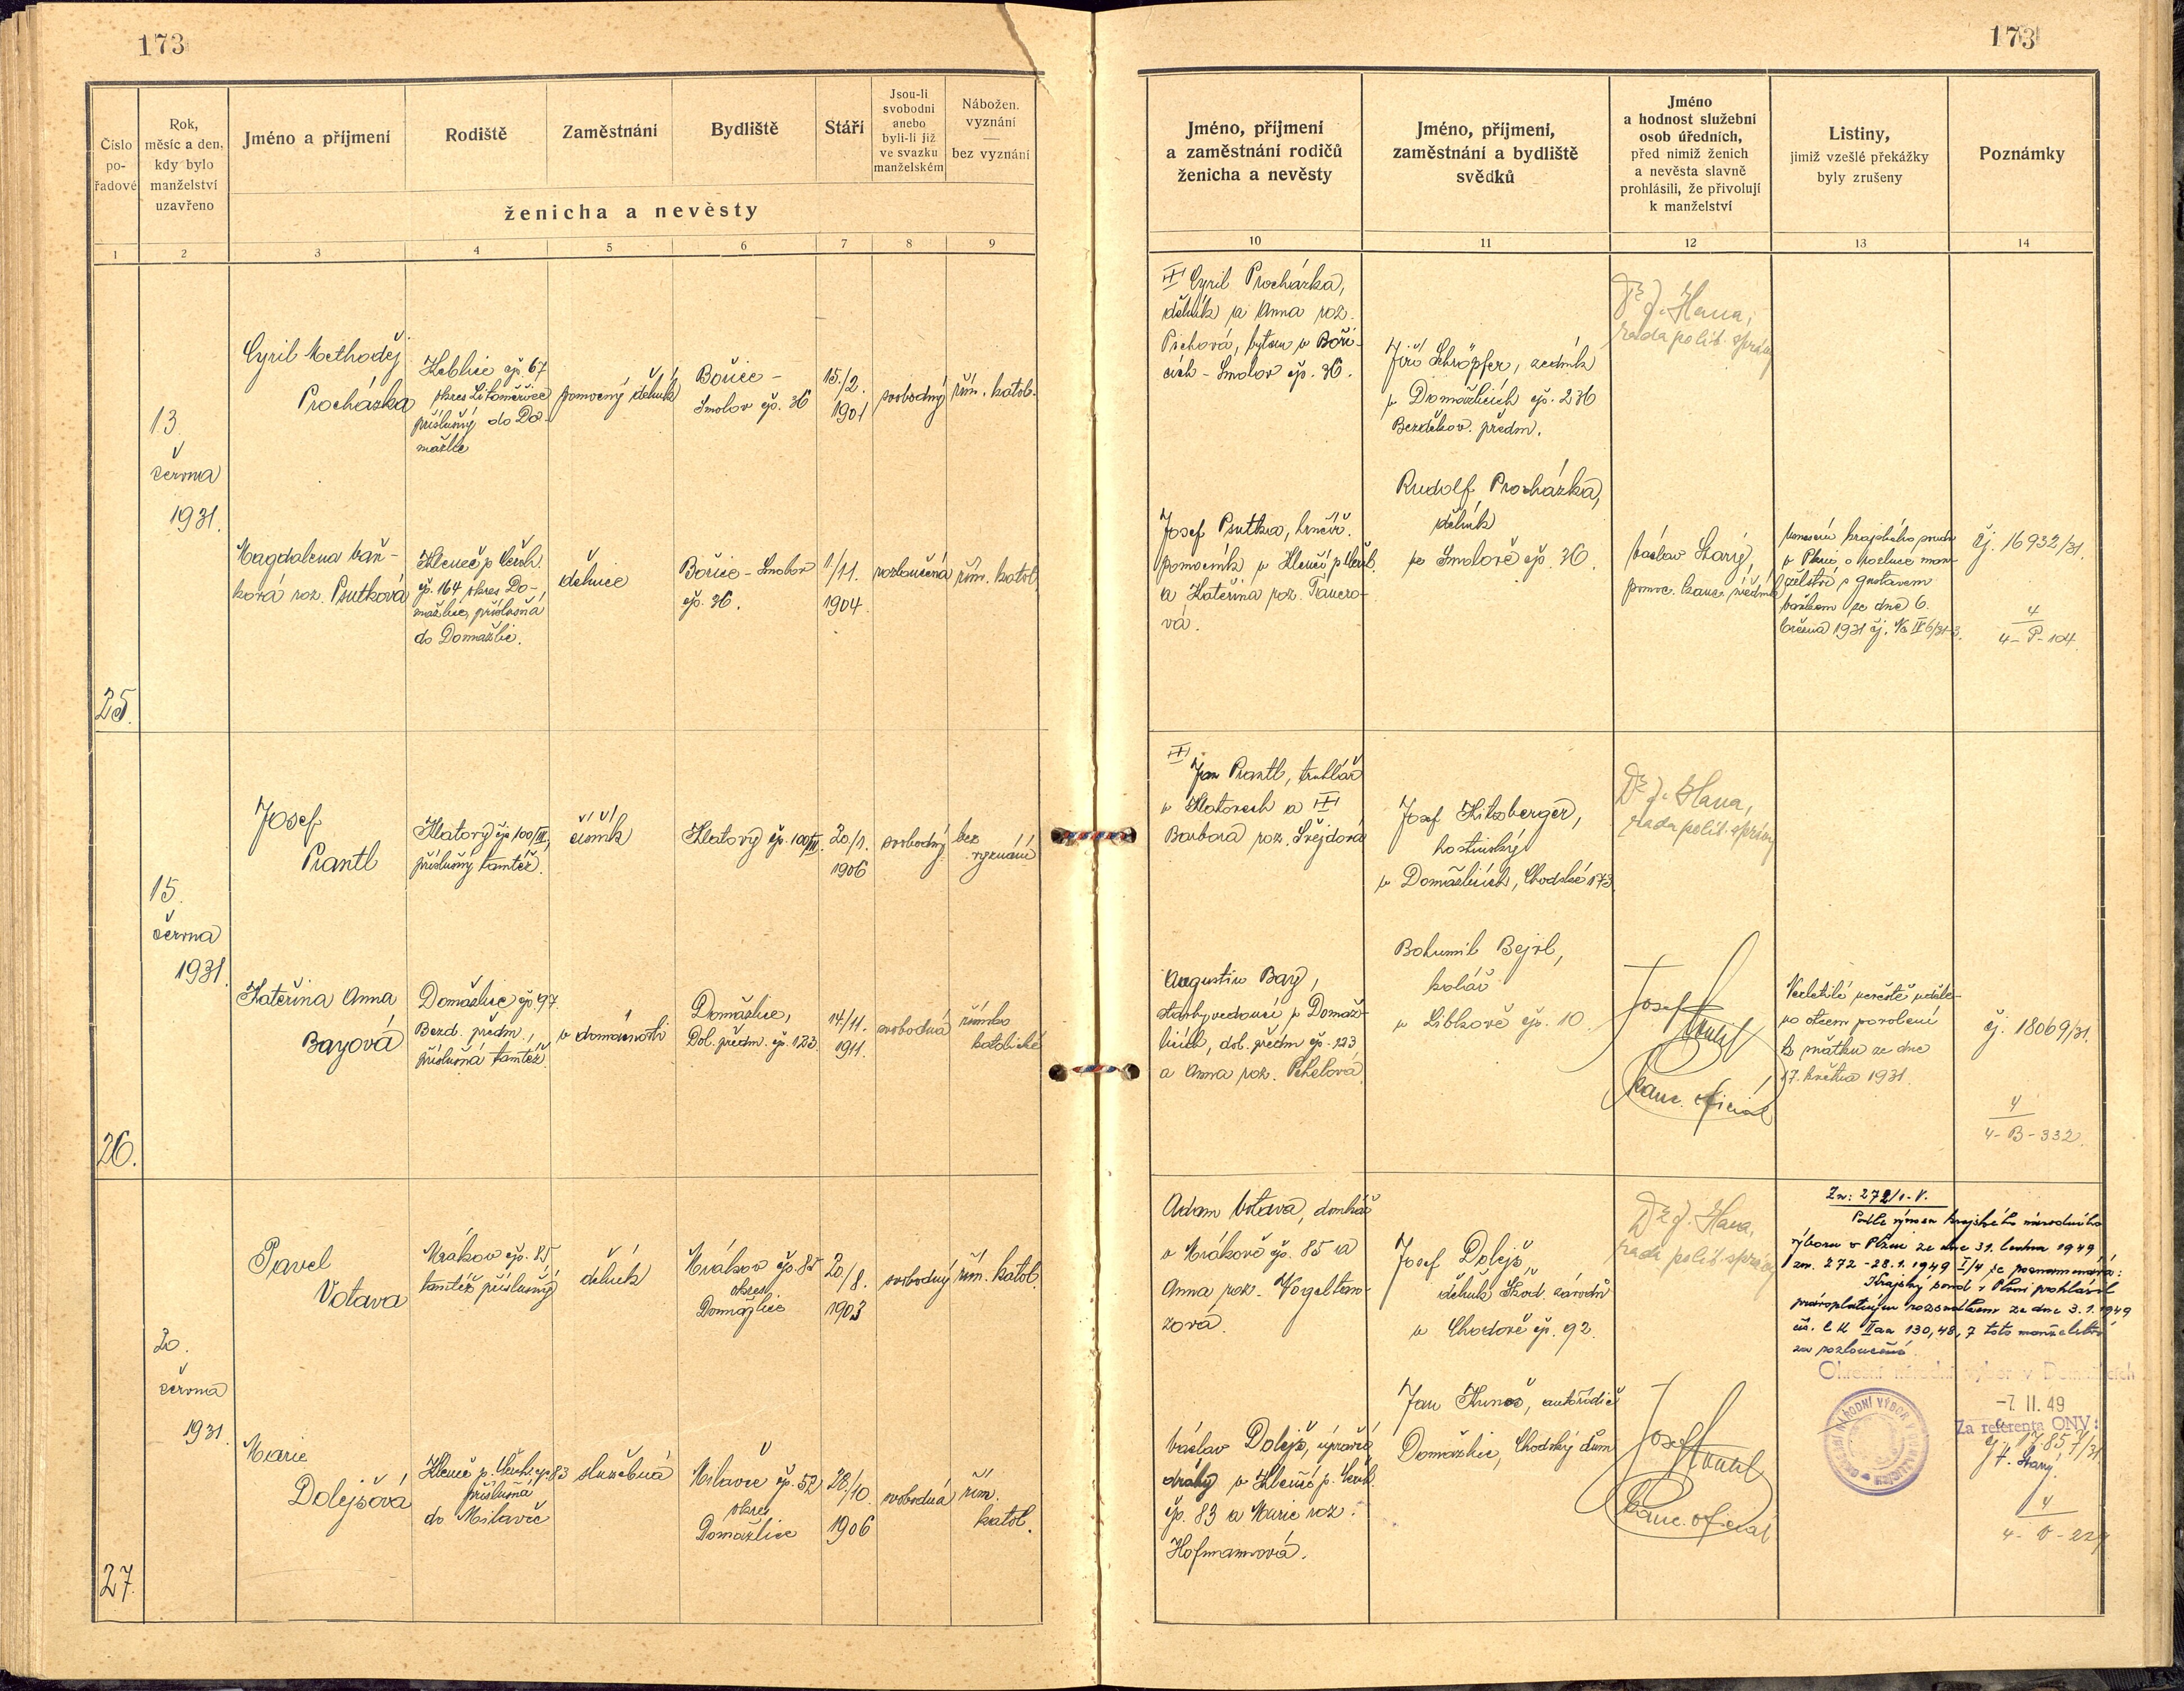 173
173
Číslo
po-
řadové
Rok,
měsíc a den,
kdy bylo
manželství
uzavřeno
Jméno a příjmení
Rodiště
Zaměstnání
Bydliště
Stáří
Jsou-li
svobodni
anebo
byli-li již
ve svazku
manželském
Nábožen.
vyznání
bez vyznání
ženicha a nevěsty
1 2 3 4 5 6 7 8 9
Jméno, příjmení
a zaměstnání rodičů
ženicha a nevěsty
Jméno, příjmení,
zaměstnání a bydliště
svědků
Jméno
a hodnost služební
osob úředních,
před nimiž ženich
a nevěsta slavně
prohlásili, že přivolují
k manželství
Listiny,
jimiž vzešlé překážky
byly zrušeny
Poznámky
10 11 12 13 14
25.
13.
června
1931.
Cyril Methoděj
Procházka
Keblice čp. 67
okres Litoměřice
příslušný do Do-
mažlic
pomocný dělník
Bořice -
Smolov čp. 36
15./2.
1901
svobodný
řím. katol.
Magdalena Vaň-
ková roz. Psutková
Klenec p. Čerch.
čp. 164 okres Do-
mažlice, příslušná
do Domažlic.
dělnice
Bořice - Smolov
čp. 36.
1/11.
1904.
rozloučená
řím. katol.
Cyril Procházka,
dělník a Anna roz.
bytem v Boři-
cích - Smolov čp. 36.
Josef Psutka, hrnčíř.
pomocník v Klenčí p. Čerch.
a Kateřina roz.
vá.
Jiří Schröpfer, zedník
v Domažlicích čp. 236
Bezděkov. předm.
Rudolf Procházka,
dělník
ve Smolově čp. 36.
Dr J. Hana,
rada polit. správy
Václav Starý,
pomoc. kanc. úředník
Usnesení krajského soudu
v Plzni o rozluce man-
želství s Gustavem
Vaňkem ze dne 6.
března 1931 čj.
čj. 16932/31.
4
4 - P - 104.
26.
15.
června
1931.
Josef
Prantl
Klatovy čp. 100/III,
příslušný tamtéž.
číšník
Klatovy čp. 100/III.
20/1.
1906
svobodný
bez
vyznání
Kateřina Anna
Bayová
Domažlice čp. 97
Bezd. předm.,
příslušná tamtéž.
v domácnosti
Domažlice,
Dol. předm. čp. 123.
14/11.
1911.
svobodná
římsko
katolické
Jan Prantl, truhlář
v Klatovech a
Barbora roz. Šrejdová
Augustin Bay,
stavbyvedoucí v Domaž-
licích, dol. předm čp. 123
a Anna roz. Pekelová
Josef Kitzberger,
hostinský
v Domažlicích, Chodské 173
Bohumil Bejvl,
kolář
v Libkově čp. 10.
Dr J. Hana,
rada polit. správy
Josef
Kanc. oficiál
Nezletilé nevěstě uděle-
no otcem povolení
k sňatku ze dne
17. května 1931.
čj. 18069/31.
4
4 - B - 332.
27.
20.
června
1931.
Pavel
Votava
Mrákov čp. 85,
tamtéž příslušný
dělník
Mrákov čp. 85
okres
Domažlice
20/8.
1903
svobodný
řím. katol.
Marie
Dolejšová
Klenec p. Čerch. čp. 83
příslušná
do Milavče
služebná
Milavče čp. 52
okres
Domažlice
28/10.
1906
svobodná
řím.
katol.
Adam Votava, domkář
v Mrákově čp. 85 a
Anna roz. Vogeltan-
zová.
Václav Dolejš,
dráhy v Klenčí p. Čerch.
čp. 83 a Marie roz.
Hofmannová.
Josef Dolejš,
dělník Škod. závodů
v Chodově čp. 92.
Jan Kuneš, autořidič
Domažlice, Chodský dům
Dr J. Hana,
rada polit. správy
Josef
Kanc. oficiál
Zn: 272/1-V.
Podle výnosu krajského národního
výboru v Plzni ze dne 31. ledna 1949
zn. 272 - 28.1.1949 I/4 se poznamenává:
Krajský soud v Plzni prohlásil
pravoplatným rozsudkem ze dne 3.1.1949
čís. C k IIa 130/48, 7 toto manželství
za rozloučené.
Okresní národní výbor v Domažlicích
-7. II. 49
Za referenta ONV:
OKRESNÍ NÁRODNÍ VÝBOR V DOMAŽLICÍCH
Starý.
4